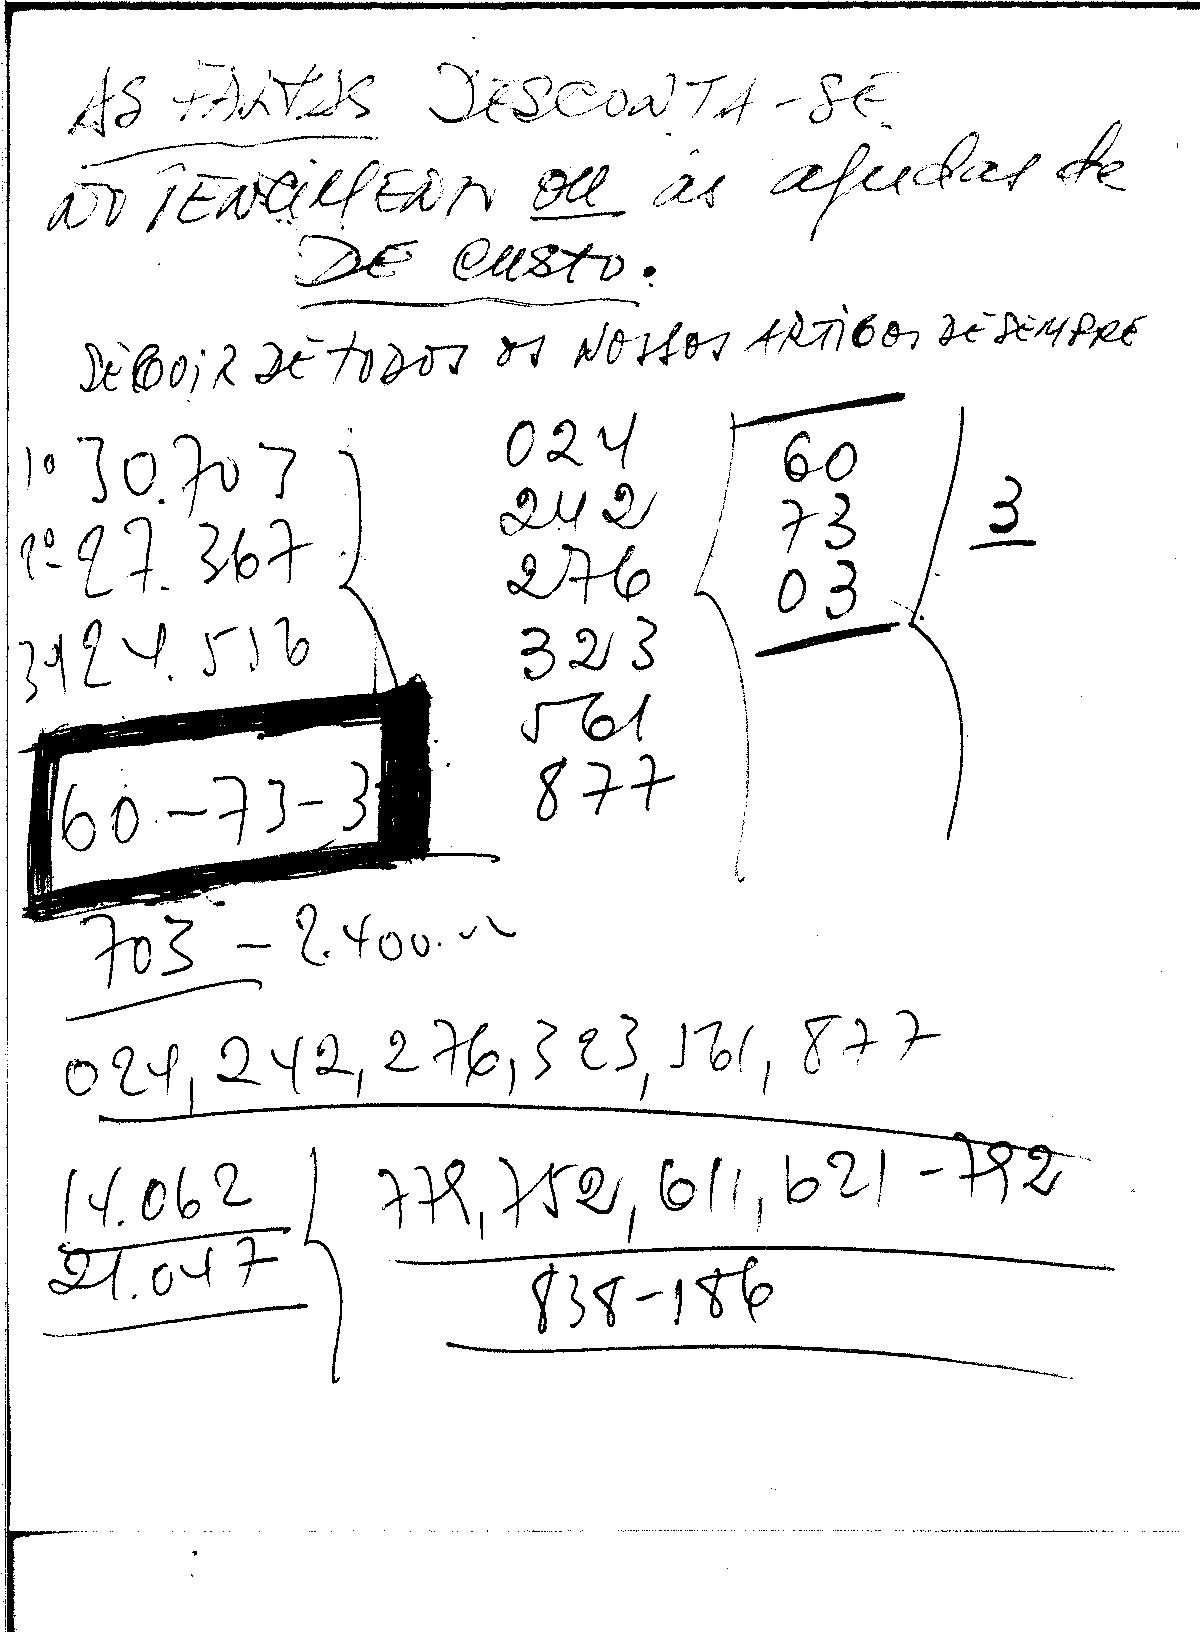 AS FALTAS DESCONTA-SE
NO VENCIMENTO OU as ajudas de
DE CUSTO.
DE TODOS OS NOSSOS ARTIGOS DE SEMPRE
1º 30.703 024 60
2º 27.367 242 73 3
3º 24.516 276 03
323
561
60-73-3 877
703 - 2.400.
024, 242, 276, 323, 561, 877
14.062 779, 752, 611, 621-792
21.047 838-186